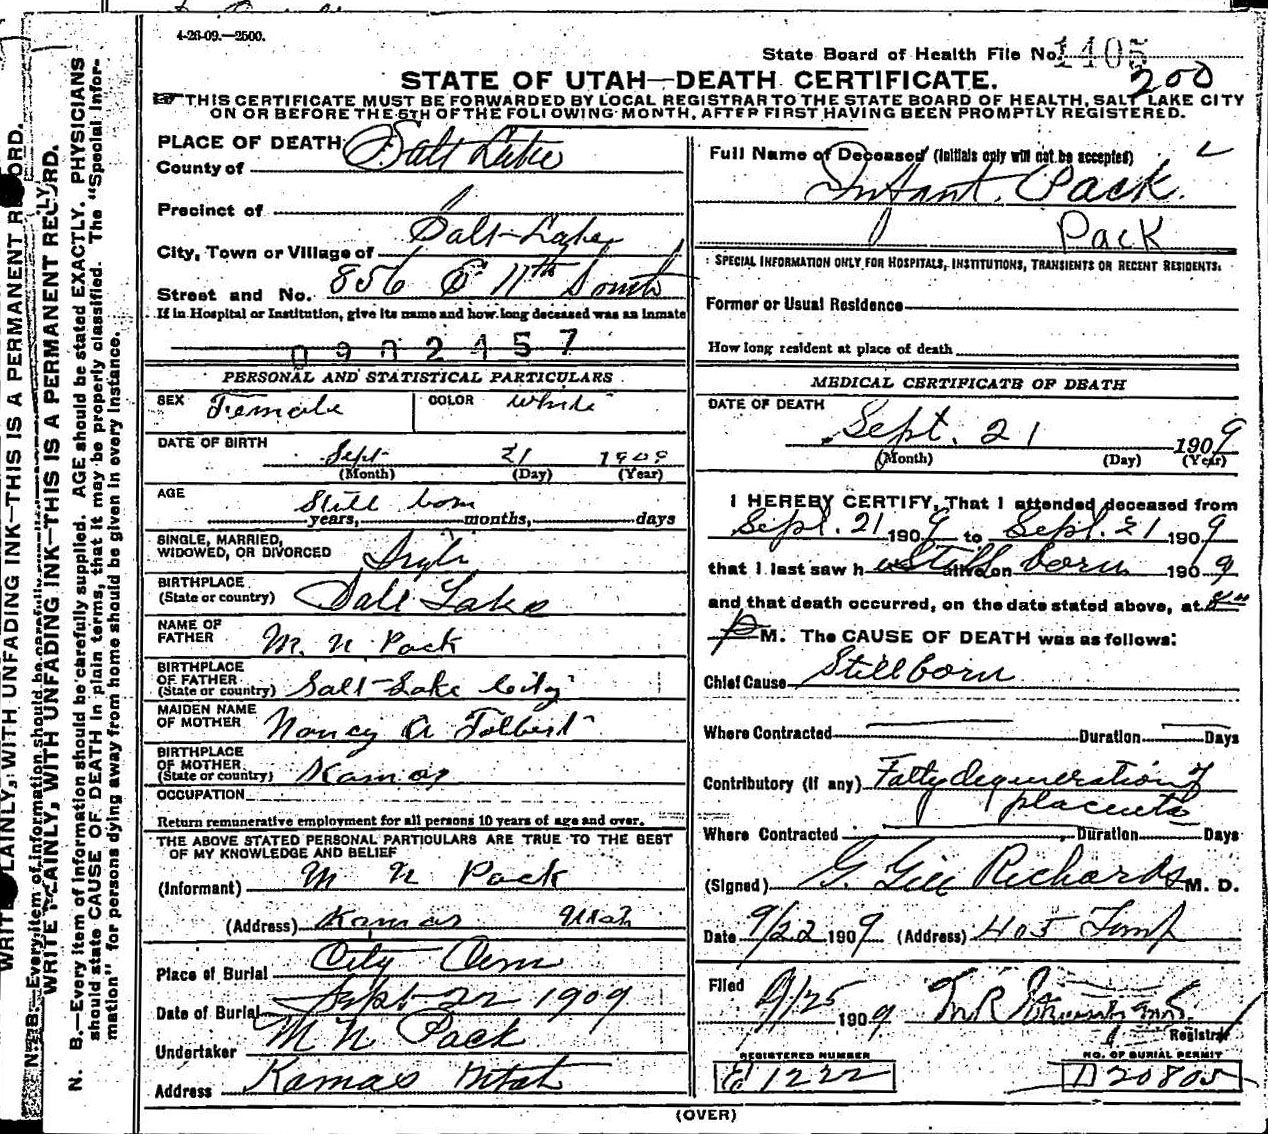 4-26-09.—2500.
State Board of Health File No. 1405
200
STATE OF UTAH—DEATH CERTIFICATE.
THIS CERTIFICATE MUST BE FORWARDED BY LOCAL REGISTRAR TO THE STATE BOARD OF HEALTH, SALT LAKE CITY
ON OR BEFORE THE 5TH OF THE FOLLOWING MONTH, AFTER FIRST HAVING BEEN PROMPTLY REGISTERED.
PLACE OF DEATH
County of Salt Lake
Precinct of
City, Town or Village of Salt Lake
Street and No. 856 E 11th South
If in Hospital or Institution, give its name and how long deceased was an inmate
PERSONAL AND STATISTICAL PARTICULARS
SEX Female COLOR White
DATE OF BIRTH
Sept 21 1909
(Month) (Day) (Year)
AGE
Still born
years, months, days
SINGLE, MARRIED,
WIDOWED, OR DIVORCED Single
BIRTHPLACE
(State or country) Salt Lake
NAME OF
FATHER M. N Pack
BIRTHPLACE
OF FATHER
(State or country) Salt-Lake City
MAIDEN NAME
OF MOTHER Nancy A Tolbert
BIRTHPLACE
OF MOTHER
(State or country) Kamas
OCCUPATION
Return remunerative employment for all persons 10 years of age and over.
THE ABOVE STATED PERSONAL PARTICULARS ARE TRUE TO THE BEST
OF MY KNOWLEDGE AND BELIEF
(Informant) M N Pack
(Address) Kamas Utah
Place of Burial City Cem
Date of Burial Sept-22 1909
Undertaker M N Pack
Address Kamas Utah
Full Name of Deceased (Initials only will not be accepted)
Infant. Pack.
Pack
SPECIAL INFORMATION ONLY FOR HOSPITALS, INSTITUTIONS, TRANSIENTS OR RECENT RESIDENTS.
Former or Usual Residence
How long resident at place of death
MEDICAL CERTIFICATE OF DEATH
DATE OF DEATH
Sept. 21 1909
(Month) (Day) (Year)
I HEREBY CERTIFY, That I attended deceased from
Sept. 21 1909 to Sept. 21 1909
that I last saw h alive on Still born 1909
and that death occurred, on the date stated above, at
P M. The CAUSE OF DEATH was as follows:
Chief Cause Stillborn
Where Contracted Duration Days
Contributory (if any) Fatty degeneration of
placenta
Where Contracted Duration Days
(Signed) G. Gill Richards M. D.
Date 9/22 1909 (Address) 405 Temp
Filed
9/25 1909
Registrar
REGISTERED NUMBER
E 1222
NO. OF BURIAL PERMIT
D 20805
(OVER)
WRITE PLAINLY, WITH UNFADING INK—THIS IS A PERMANENT RECORD.
N. B.—Every item of information should be carefully
WRITE PLAINLY, WITH UNFADING INK—THIS IS A PERMANENT RECORD.
N. B.—Every item of information should be carefully supplied. AGE should be stated EXACTLY. PHYSICIANS
should state CAUSE OF DEATH in plain terms, that it may be properly classified. The "Special Infor-
mation" for persons dying away from home should be given in every instance.